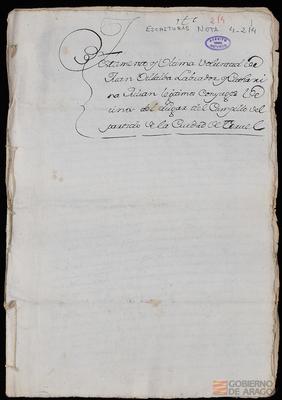 2/4
ESCRITURAS NOTA 4-2/4
Testamento y Ultima Voluntad de
Juan Villalba Labrador y
Julian legitimos Conyuges
del Lugar del Campillo del
partido de la Ciudad de Teruel
GOBIERNO
DE ARAGON